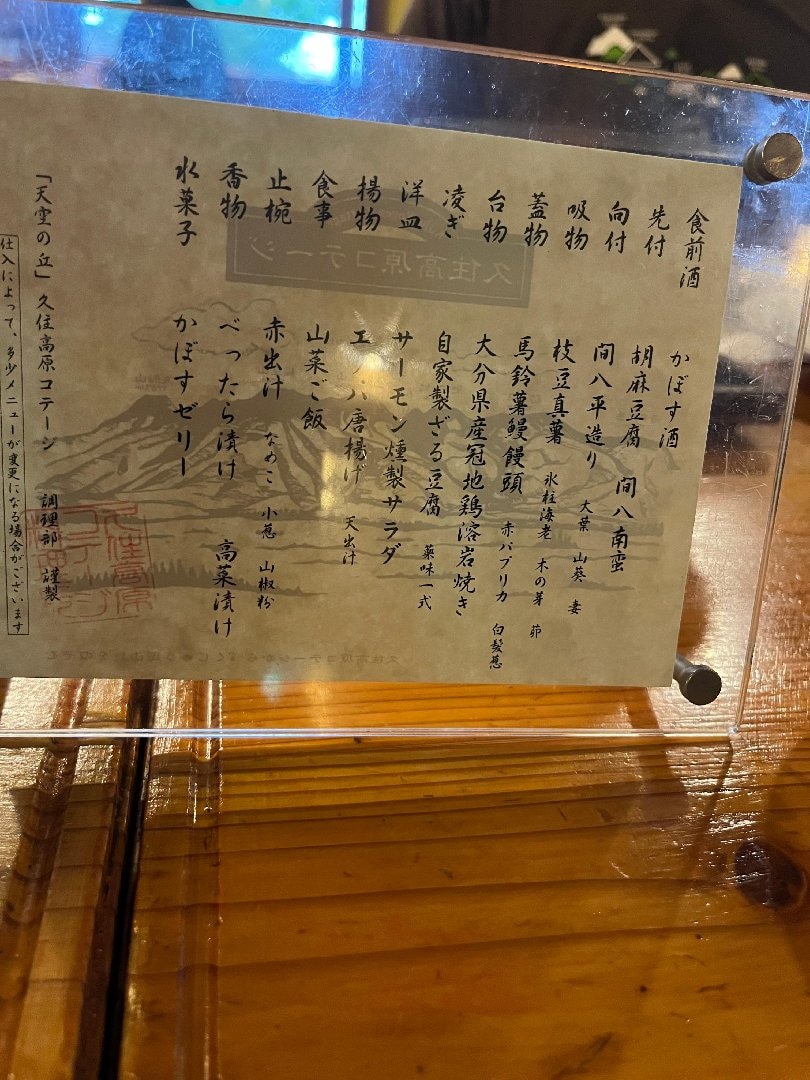 食前酒 かぼす酒
先付 胡麻豆腐 間八南蛮
向付 間八平造り 大葉 山葵 妻
吸物 枝豆真薯 氷柱海老 木の芽 茆
蓋物 馬鈴薯鰻饅頭 赤パプリカ 白髪葱
台物 大分県産冠地鶏溶岩焼き
凌ぎ 自家製ざる豆腐 薬味一式
洋皿 サーモン燻製サラダ
揚物 唐揚げ 天出汁
食事 山菜ご飯
止椀 赤出汁 なめこ 小葱 山椒粉
香物 べったら漬け 高菜漬け
水菓子 かぼすゼリー
「天空の丘」久住高原コテージ 調理部 謹製
仕入によって、多少メニューが変更になる場合がございます
久住高原コテージ